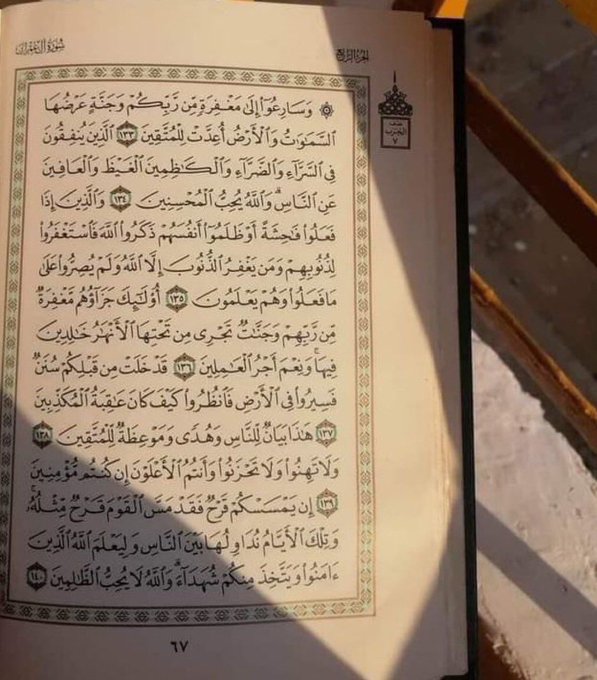 سُورَةُ آلِ عِمْرَانَ
الجُزءُ الرَّابِعُ
نصف
الحزب
٧
۞ وَسَارِعُوٓا۟ إِلَىٰ مَغْفِرَةٍۢ مِّن رَّبِّكُمْ وَجَنَّةٍ عَرْضُهَا
ٱلسَّمَـٰوَٰتُ وَٱلْأَرْضُ أُعِدَّتْ لِلْمُتَّقِينَ ١٣٣ ٱلَّذِينَ يُنفِقُونَ
فِى ٱلسَّرَّآءِ وَٱلضَّرَّآءِ وَٱلْكَـٰظِمِينَ ٱلْغَيْظَ وَٱلْعَافِينَ
عَنِ ٱلنَّاسِ ۗ وَٱللَّهُ يُحِبُّ ٱلْمُحْسِنِينَ ١٣٤ وَٱلَّذِينَ إِذَا
فَعَلُوا۟ فَـٰحِشَةً أَوْ ظَلَمُوٓا۟ أَنفُسَهُمْ ذَكَرُوا۟ ٱللَّهَ فَٱسْتَغْفَرُوا۟
لِذُنُوبِهِمْ وَمَن يَغْفِرُ ٱلذُّنُوبَ إِلَّا ٱللَّهُ وَلَمْ يُصِرُّوا۟ عَلَىٰ
مَا فَعَلُوا۟ وَهُمْ يَعْلَمُونَ ١٣٥ أُو۟لَـٰٓئِكَ جَزَآؤُهُم مَّغْفِرَةٌ
مِّن رَّبِّهِمْ وَجَنَّـٰتٌ تَجْرِى مِن تَحْتِهَا ٱلْأَنْهَـٰرُ خَـٰلِدِينَ
فِيهَا ۚ وَنِعْمَ أَجْرُ ٱلْعَـٰمِلِينَ ١٣٦ قَدْ خَلَتْ مِن قَبْلِكُمْ سُنَنٌ
فَسِيرُوا۟ فِى ٱلْأَرْضِ فَٱنظُرُوا۟ كَيْفَ كَانَ عَـٰقِبَةُ ٱلْمُكَذِّبِينَ
١٣٧ هَـٰذَا بَيَانٌ لِّلنَّاسِ وَهُدًى وَمَوْعِظَةٌ لِّلْمُتَّقِينَ ١٣٨
وَلَا تَهِنُوا۟ وَلَا تَحْزَنُوا۟ وَأَنتُمُ ٱلْأَعْلَوْنَ إِن كُنتُم مُّؤْمِنِينَ
١٣٩ إِن يَمْسَسْكُمْ قَرْحٌ فَقَدْ مَسَّ ٱلْقَوْمَ قَرْحٌ مِّثْلُهُۥ ۚ
وَتِلْكَ ٱلْأَيَّامُ نُدَاوِلُهَا بَيْنَ ٱلنَّاسِ وَلِيَعْلَمَ ٱللَّهُ ٱلَّذِينَ
ءَامَنُوا۟ وَيَتَّخِذَ مِنكُمْ شُهَدَآءَ ۗ وَٱللَّهُ لَا يُحِبُّ ٱلظَّـٰلِمِينَ ١٤٠
٦٧